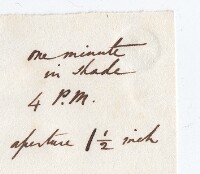 one minute
in shade
4 P.M.
aperture 1 1/2 inch